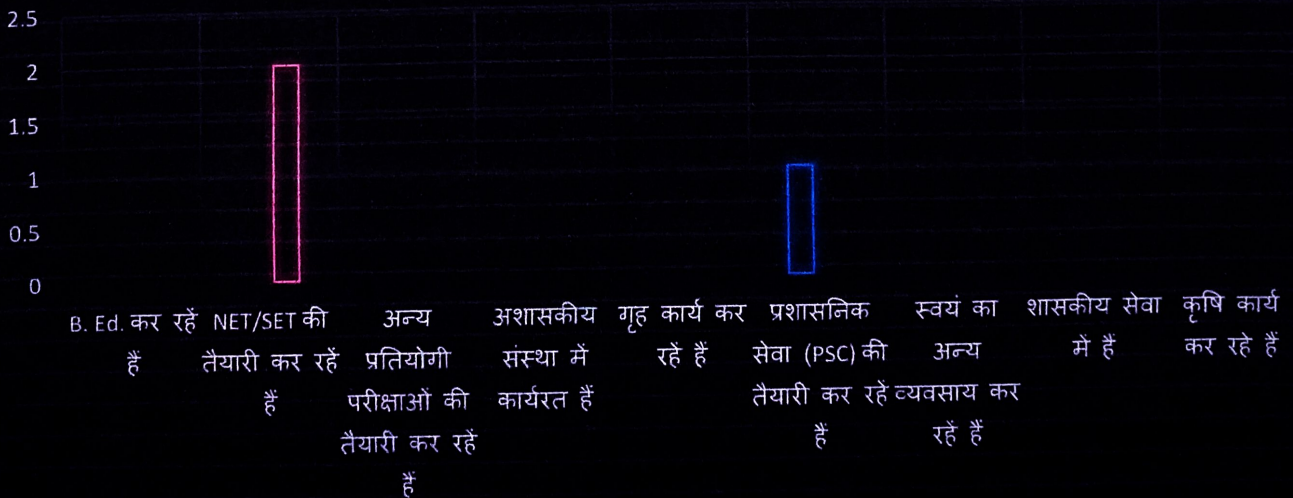 2.5
2
1.5
1
0.5
0
B. Ed. कर रहें
हैं
NET/SET की
तैयारी कर रहें
हैं
अन्य
प्रतियोगी
परीक्षाओं की
तैयारी कर रहें
हैं
अशासकीय
संस्था में
कार्यरत हैं
गृह कार्य कर
रहें हैं
प्रशासनिक
सेवा (PSC) की
तैयारी कर रहें
हैं
स्वयं का
अन्य
व्यवसाय कर
रहें हैं
शासकीय सेवा
में हैं
कृषि कार्य
कर रहे हैं